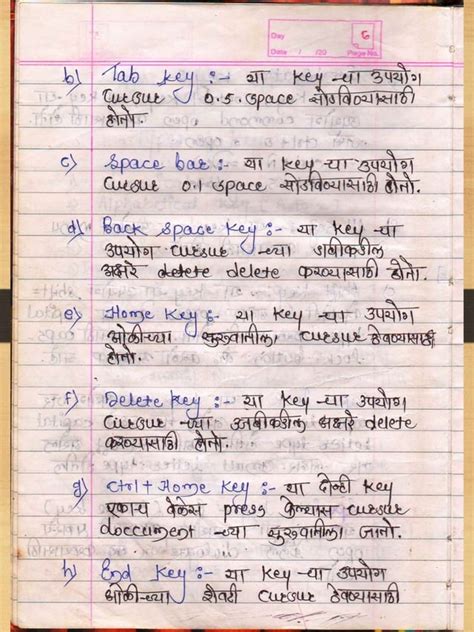 Day
Date / /20 Page No. 6
b) Tab key :- या key -या उपयोग
cursur 0.5. space सोडविण्यासाठी
होतो.
c) Space bar :- या key -या उपयोग
cursur 0.1 space सोडविण्यासाठी होतो.
d) Back space key :- या key -या
उपयोग cursur -च्या डावीकडील
अक्षरे delete delete करण्यासाठी होतो.
e) Home key :- या key -या उपयोग
ओळी-च्या सुरुवातीला, cursur ठेवण्यासाठी
होतो.
f) Delete key :- या key -या उपयोग
cursur -च्या उजवीकडील अक्षरे delete
करण्यासाठी होतो.
g) Ctrl + Home key :- या दोन्ही key
एकाच वेळेस press केल्यास cursur
doccument -च्या सुरुवातीला जातो.
h) End key :- या key -या उपयोग
ओळी-च्या शेवटी cursur ठेवण्यासाठी